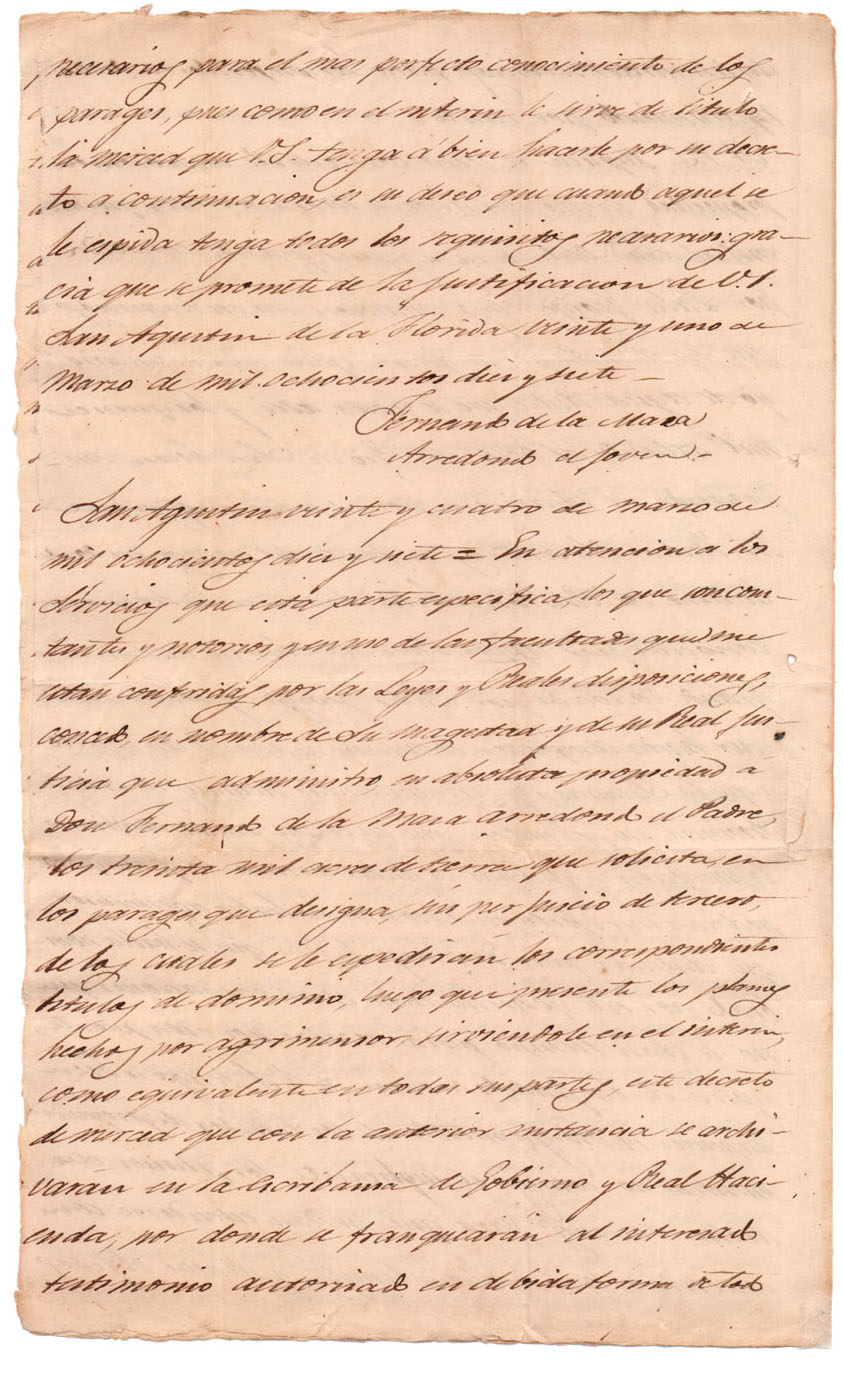 necesarios para el mas perfecto conocimiento de los
parages, pues como en el interin le sirve de titulo
la merced que V.S. tenga á bien hacerle por su decre-
to a continuacion, es su deseo que cuando aquel se
le espida tenga todos los requisitos necesarios: gra-
cia que se promete de la justificacion de V.S.
San Agustin de la Florida veinte y uno de
Marzo de mil ochocientos diez y siete –
Fernando de la Maza
Arredondo el Joven –
San Agustin veinte y cuatro de marzo de
mil ochocientos diez y siete = En atencion á los
servicios que esta parte especifica, los que son cons-
tantes y notorios, y en uso de las facultades que me
estan conferidas por las Leyes y Reales disposiciones,
concedo, en nombre de Su Magestad y de su Real Jus-
ticia que administro en absoluta propiedad á
Don Fernando de la Maza Arredondo el Padre,
los treinta mil acres de tierra que solicita, en
los parages que designa, sin perjuicio de tercero,
de los cuales se le espedirán los correspondientes
titulos de dominio, luego que presente los planes
hechos por agrimensor sirviendole en el interin,
como equivalente en todas sus partes, este decreto
de merced que con la anterior instancia se archi-
varán en la Escribania de Gobierno y Real Haci-
enda, por donde se franquearán al interesado
testimonio autorizado en debida forma de todo